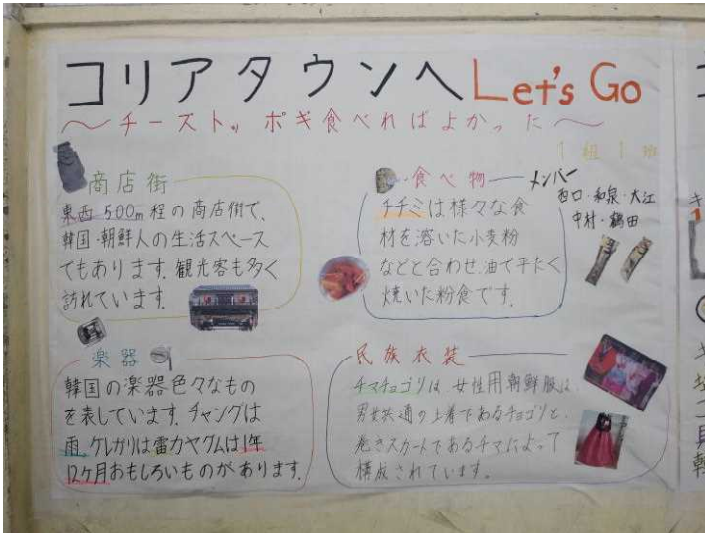 コリアタウンへLet's Go
〜チーズトッポギ食べればよかった〜
1組1班
商店街
東西500m程の商店街で、
韓国・朝鮮人の生活スペース
でもあります。観光客も多く
訪れています。
食べ物
チヂミは様々な食
材を溶いた小麦粉
などと合わせ、油で平たく
焼いた粉食です。
メンバー
西口・和泉・大江
中村・鶴田
楽器
韓国の楽器色々なもの
を表しています。チャングは
雨、ケレガリは雷カヤグムは1年
12ヶ月おもしろいものがあります。
民族衣装
チマチョゴリは、女性用朝鮮服は、
男女共通の上着であるチョゴリと、
巻きスカートであるチマによって
構成されています。